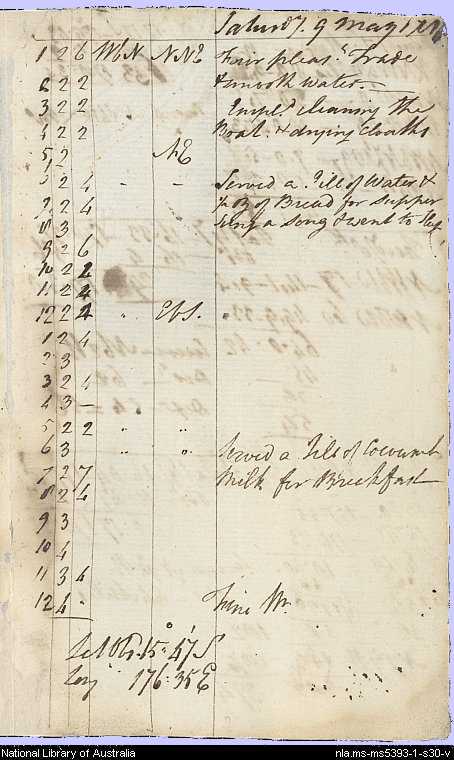 Saturdy. 9 May 1789
1 2 6 WbN NNE Fair pleast. Trade
2 2 2 & smooth water.
3 2 2 Empld. cleaning the
4 2 2 Boat. & drying Cloaths
5 2 NE
6 2 4 " - Served a Jill of Water &
7 2 4 of Bread for Supper
8 3 sung a song & went to sleep
9 2 6
10 2 2
11 2 4
12 2 4 " EbS. "
1 2 4
2 3
3 2 4
4 3 -
5 2 2 " "
6 3 " " Served a Jill of Cocoanut
7 2 7 Milk for Breekfast
8 2 4
9 3
10 4
11 3 4
12 4 " Fine Wr.
Lat Obd. 15° 47' S
Long 176.35 E
National Library of Australia
nla.ms-ms5393-1-s30-v